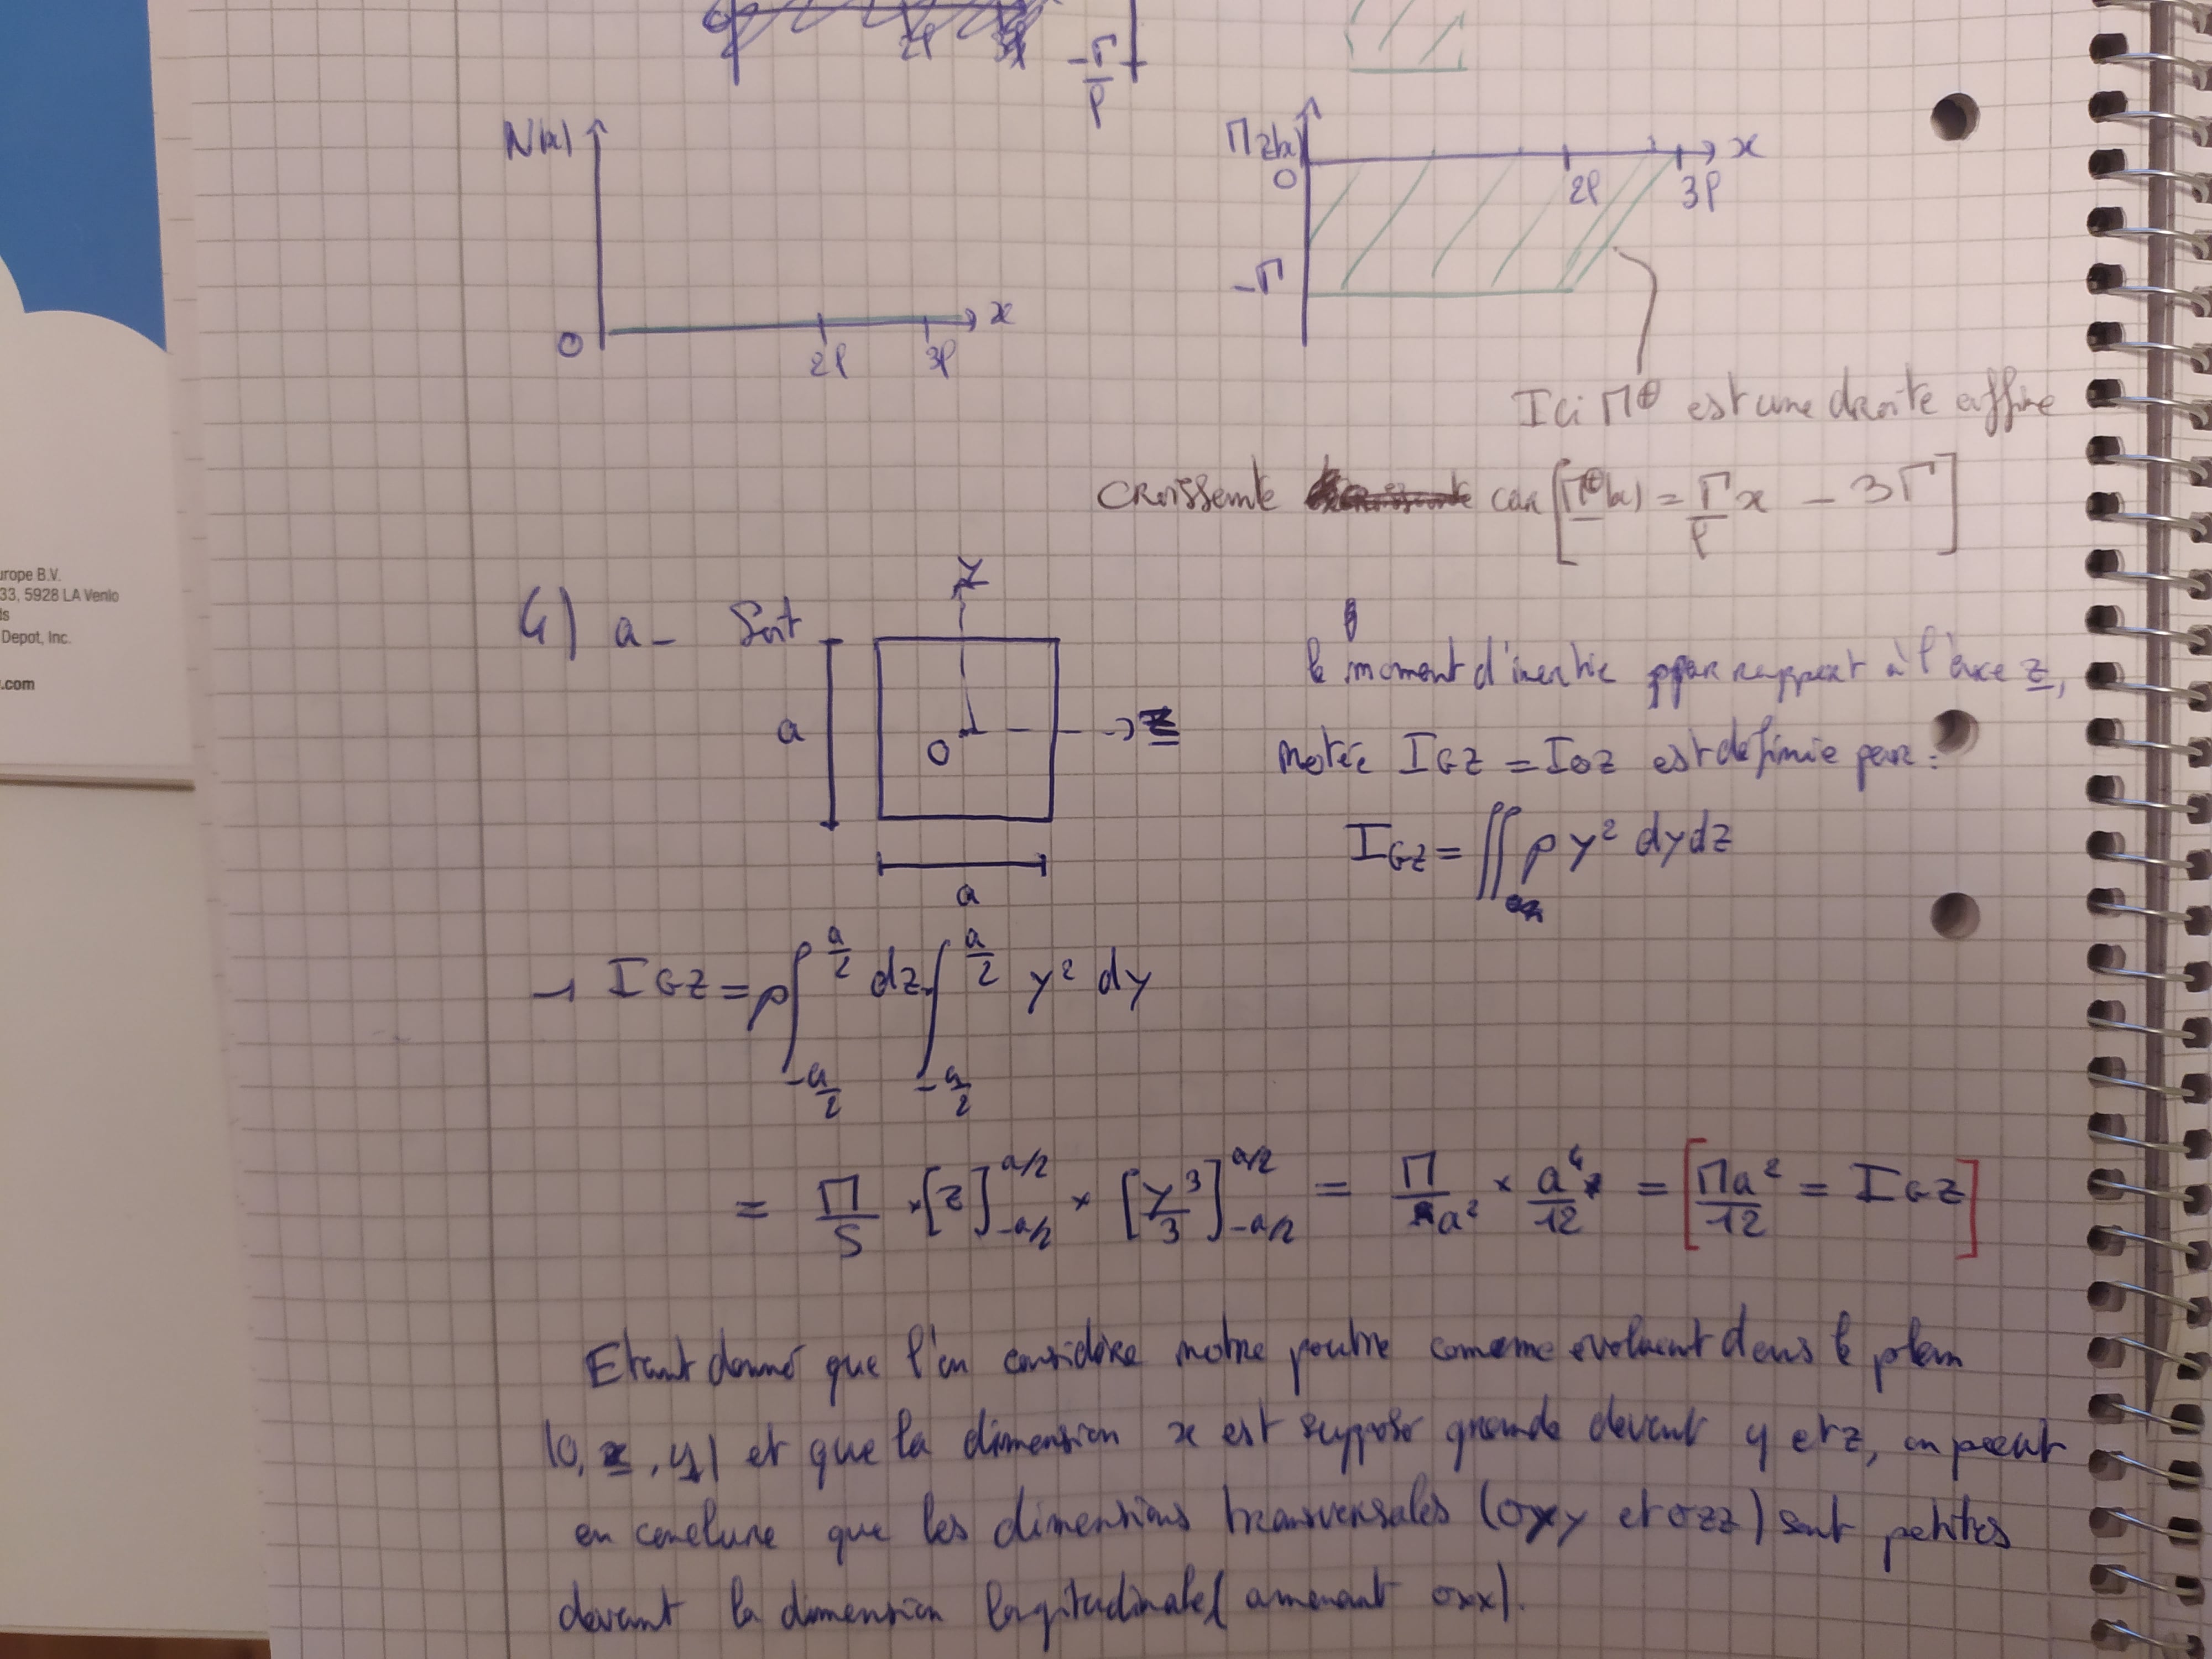 -Γ/ρ
N(x)
O
2ρ
3ρ
x
Πz(x)
O
-Γ
2ρ
3ρ
x
Ici Π⊕ est une droite affine
croissante car [Π⊕(x) = Γ/ρ x - 3Γ]
urope B.V.
33, 5928 LA Venlo
ds
Depot, Inc.
.com
4) a- Soit
y
a
O
z
a
le moment d'inertie par rapport à l'axe z,
notée IGZ = IOZ est définie par :
IGZ = ∬ ρ y² dydz
→ IGZ = ρ ∫_{-a/2}^{a/2} dz. ∫_{-a/2}^{a/2} y² dy
= Π/S × [z]_{-a/2}^{a/2} × [y³/3]_{-a/2}^{a/2} = Π/a² × a⁴/12 = [Πa²/12 = IGZ]
Etant donné que l'on considère notre poutre comme evoluant dans le plan
(O, x, y) et que la dimension x est supposé grande devant y et z, on peut
en conclure que les dimensions transversales (σxy et σzz) sont petites
devant la dimension longitudinale (amenant σxx).